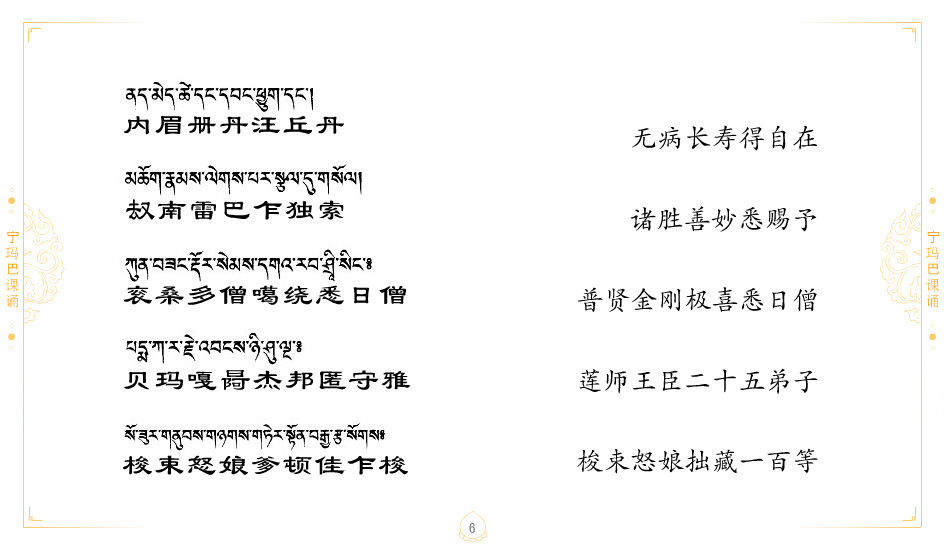 ནད་མེད་ཚེ་དང་དབང་ཕྱུག་དང་།
内眉册丹汪丘丹
无病长寿得自在
མཆོག་རྣམས་ལེགས་པར་སྩལ་དུ་གསོལ།
敖南雷巴乍独索
诸胜善妙悉赐予
ཀུན་བཟང་རྡོར་སེམས་དགའ་རབ་ཤྲཱི་སིང་༔
衮桑多僧噶绕悉日僧
普贤金刚极喜悉日僧
པདྨ་ཀ་ར་རྗེ་འབངས་ཉི་ཤུ་ལྔ་༔
贝玛嘎杰邦匿守雅
莲师王臣二十五弟子
སོ་ཟུར་གནུབས་གཉགས་གཏེར་སྟོན་བརྒྱ་རྩ་སོགས༔
梭束怒娘爹顿佳乍梭
梭束怒娘拙藏一百等
宁玛巴课诵
宁玛巴课诵
6